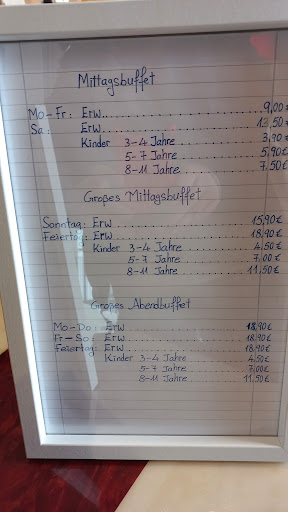 Mittagsbuffet
Mo-Fr: Erw. 9,00 €
Sa: Erw. 13,50 €
Kinder 3-4 Jahre 3,90 €
5-7 Jahre 5,90 €
8-11 Jahre 7,50 €
Großes Mittagsbuffet
Sonntag: Erw. 15,90 €
Feiertag: Erw. 18,90 €
Kinder 3-4 Jahre 4,50 €
5-7 Jahre 7,00 €
8-11 Jahre 11,50 €
Großes Abendbuffet
Mo-Do: Erw. 18,90 €
Fr-So: Erw. 18,90 €
Feiertag: Erw. 18,90 €
Kinder 3-4 Jahre 4,50 €
5-7 Jahre 7,00 €
8-11 Jahre 11,50 €